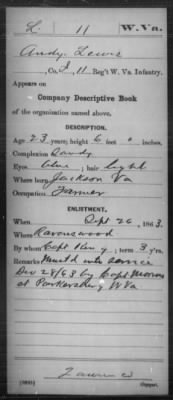 L. 11 W. Va.
Andy Lewis
, Co. I, 11 Reg't W. Va. Infantry.
Appears on
Company Descriptive Book
of the organization named above.
DESCRIPTION.
Age 23 years; height 6 feet 0 inches.
Complexion Sandy
Eyes blue ; hair light
Where born Jackson Va
Occupation Farmer
ENLISTMENT.
When Sept 26 , 1863.
Where Ravenswood
By whom Capt ; term 3 y'rs.
Remarks Must'd into service
28/63 by Capt
at Parkersburg W Va
Copyist.